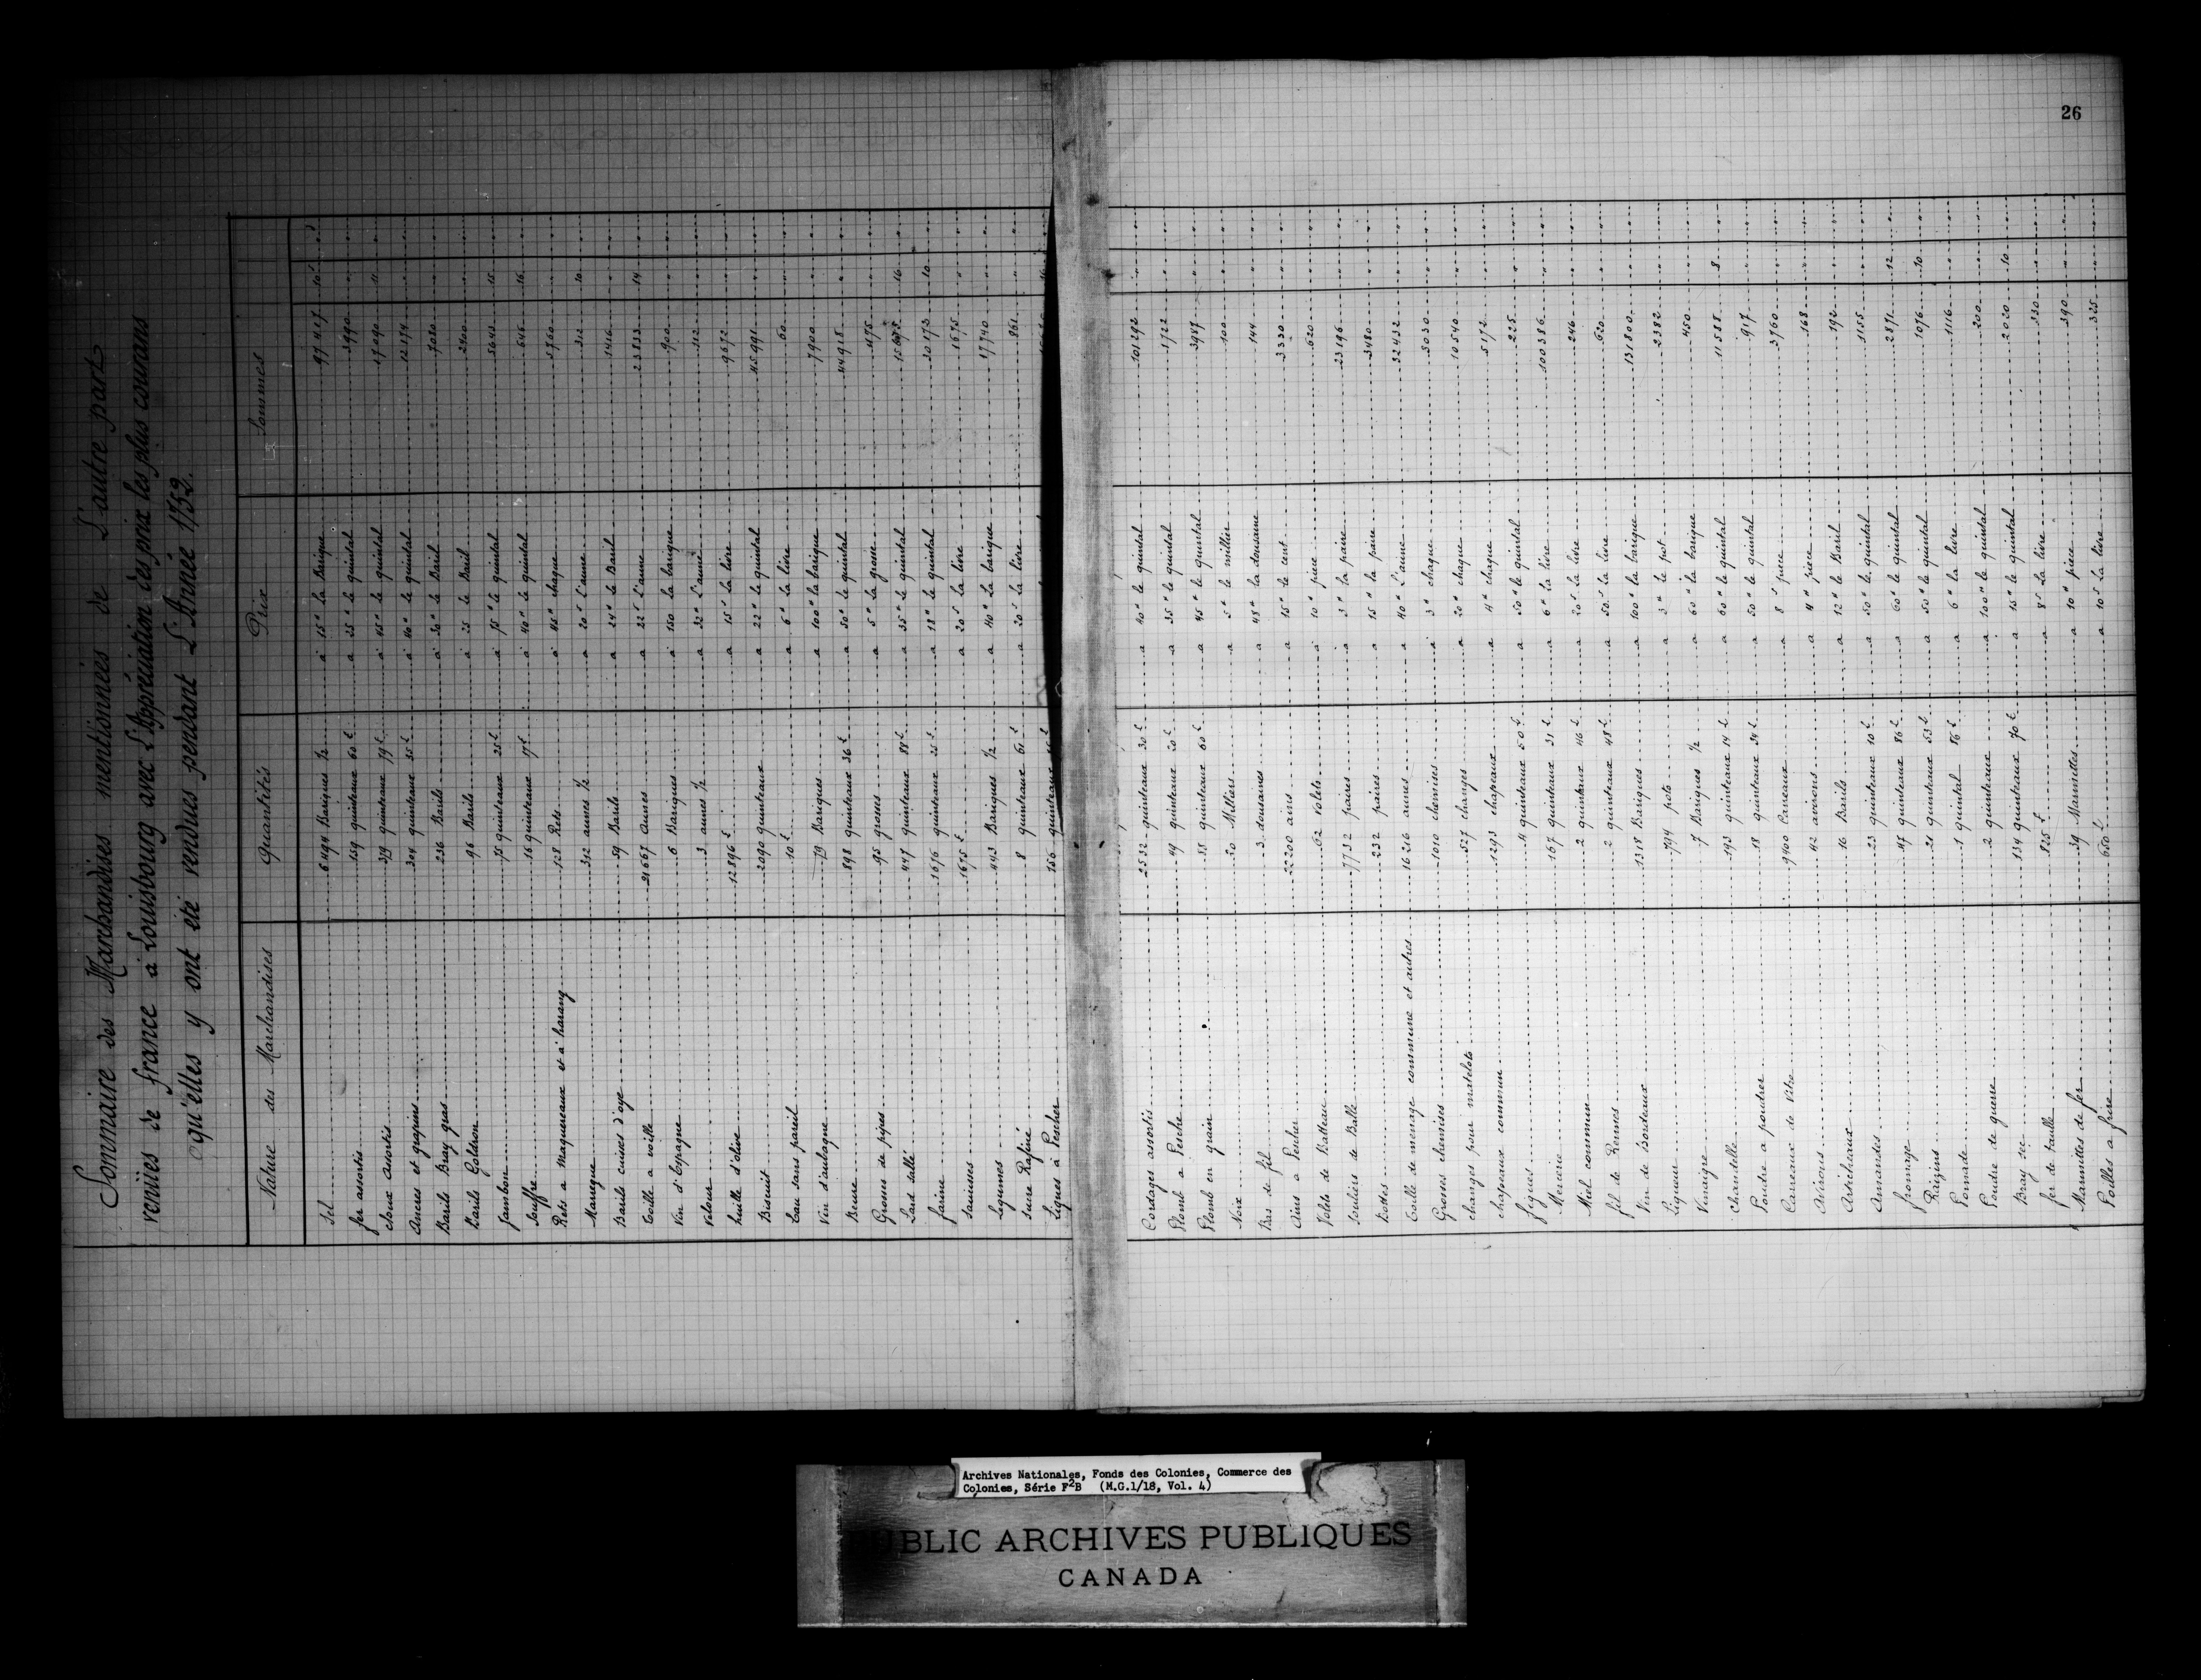 Sommaire des Marchandises mentionnées de L'autre part
venües de france a Louisbourg avec L'Appréciation des prix les plus courans
qu'elles y ont été vendues pendant L'Année 1752.
Nature des Marchandises Quantités Prix Sommes
Sel 6494 Bariques 1/2 à 15" La Barique 97417 10 s
fer assortis 159 quinteaux 60 £ a 25" le quintal 3990 " "
cloux assortis 379 quinteaux 79 £ à 45" le quintal 17090 11 "
Ancres et grapins 304 quinteaux 35 £ à 40" le quintal 12174 " "
Barils Bray gras 236 Barils à 30" le Baril 7080 " "
Barils Goldron 96 Barils à 25 le Baril 2400 " "
Jambon 75 quinteaux 25 £ à 75" le quintal 5643 15 "
Souffre 16 quinteaux 17 £ à 40" le quintal 646 16 "
Rets a Maquereaux et à harang 128 Rets à 45" chaque 5760 " "
Maneque 312 aunes 1/2 a 20 s L'aune 312 10 "
Barils cuises d'oye 59 Barils a 24" le Baril 1416 " "
Toille a voille 21667 Aunes a 22 s L'aune 23833 14 "
Vin d'Espagne 6 Bariques à 150 la barique 900 " "
Velour 3 aunes 1/2 a 32" L'aune 112 " "
huille d'olive 12896 £ a 15 s La livre 9672 " "
Biscuit 2090 quinteaux a 22" le quintal 45991 " "
Eau sans pareil 10 £ a 6" la livre 60 " "
Vin d'aubagne 79 Bariques a 100" la barique 7900 " "
Beure 898 quinteaux 36 £ a 50" le quintal 44918 " "
Groses de pipes 95 groses a 5" la grose 475 " "
Lard sallé 447 quinteaux 88 £ a 35" le quintal 15675 16 "
farine 1676 quinteaux 25 £ a 18" le quintal 30173 10 "
sauisses 1675 £ a 20 s La livre 1675 " "
Legumes 443 Bariques 1/2 a 40" La barique 17740 " "
sucre Rafiné 8 quinteaux 61 £ a 20 s La livre 861 " "
Lignes à Pescher 156 quinteaux
26
Cordages assortis 2532 quinteaux 30 £ a 40" le quintal 101292 " "
Plomb a Pesche 49 quinteaux 20 £ a 35" le quintal 1722 " "
Plomb en grain 88 quinteaux 60 £ a 45" le quintal 3987 " "
Noix 20 Milliers a 5" le millier 100 " "
Bas de fil 3 dousaines a 48" la dousaine 144 " "
Ains a Pescher 22200 ains a 15" le cent 3330 " "
Volets de Batteau 62 Volets à 10" piece 620 " "
Souliers de Balle 7732 paires a 3" la paire 23196 " "
Bottes 232 paires a 15" la paire 3480 " "
Toille de menage commune et autres 16216 aunes a 40" L'aune 32432 " "
Grosses chemises 1010 chemises a 3" chaque 3030 " "
changes pour matelots 527 changes a 20" chaque 10540 " "
chapeaux commun 1293 chapeaux a 4" chaque 5172 " "
figues 4 quinteaux 50 £ a 50" le quintal 225 " "
Mercerie 167 quinteaux 31 £ a 6" la livre 100386 " "
Miel commun 2 quinteaux 46 £ a 20 s La livre 246 " "
fil de Rennes 2 quinteaux 48 £ a 50 s La livre 620 " "
Vin de Bordeaux 1318 Bariques a 100" la barique 131800 " "
Liqueur 794 pots a 3" le pot 2382 " "
Vinaigre 7 Bariques 1/2 a 60" la barique 450 " "
chandelle 193 quinteaux 14 £ a 60" le quintal 11588 8 "
Poudre a poudrer 18 quinteaux 34 £ a 50" le quintal 917 " "
Carreaux de Vitre 9400 Carreaux a 8 s piece 3760 " "
Avirons 42 avirons a 4" piece 168 " "
Artichaux 16 Barils a 12" le Baril 192 " "
Amandes 23 quinteaux 10 £ a 50" le quintal 1155 " "
fromage 47 quinteaux 86 £ a 60" le quintal 2871 12 "
Raizins 21 quinteaux 53 £ a 50" le quintal 1076 10 "
Pomade 1 quintal 86 £ a 6" la livre 1116 " "
Poudre de guerre 2 quinteaux a 100" le quintal 200 " "
Bray sec 134 quinteaux 70 £ a 15" le quintal 2020 10 "
fer de taulle 825 £ a 8 s La livre 330 " "
Marmittes de fer 39 Marmittes a 10" piece 390 " "
Poilles a frire 650 £ a 10 s La livre 325 " "
Archives Nationales, Fonds des Colonies, Commerce des
Colonies, Série F²B (M.G.1/18, Vol. 4)
PUBLIC ARCHIVES PUBLIQUES
CANADA